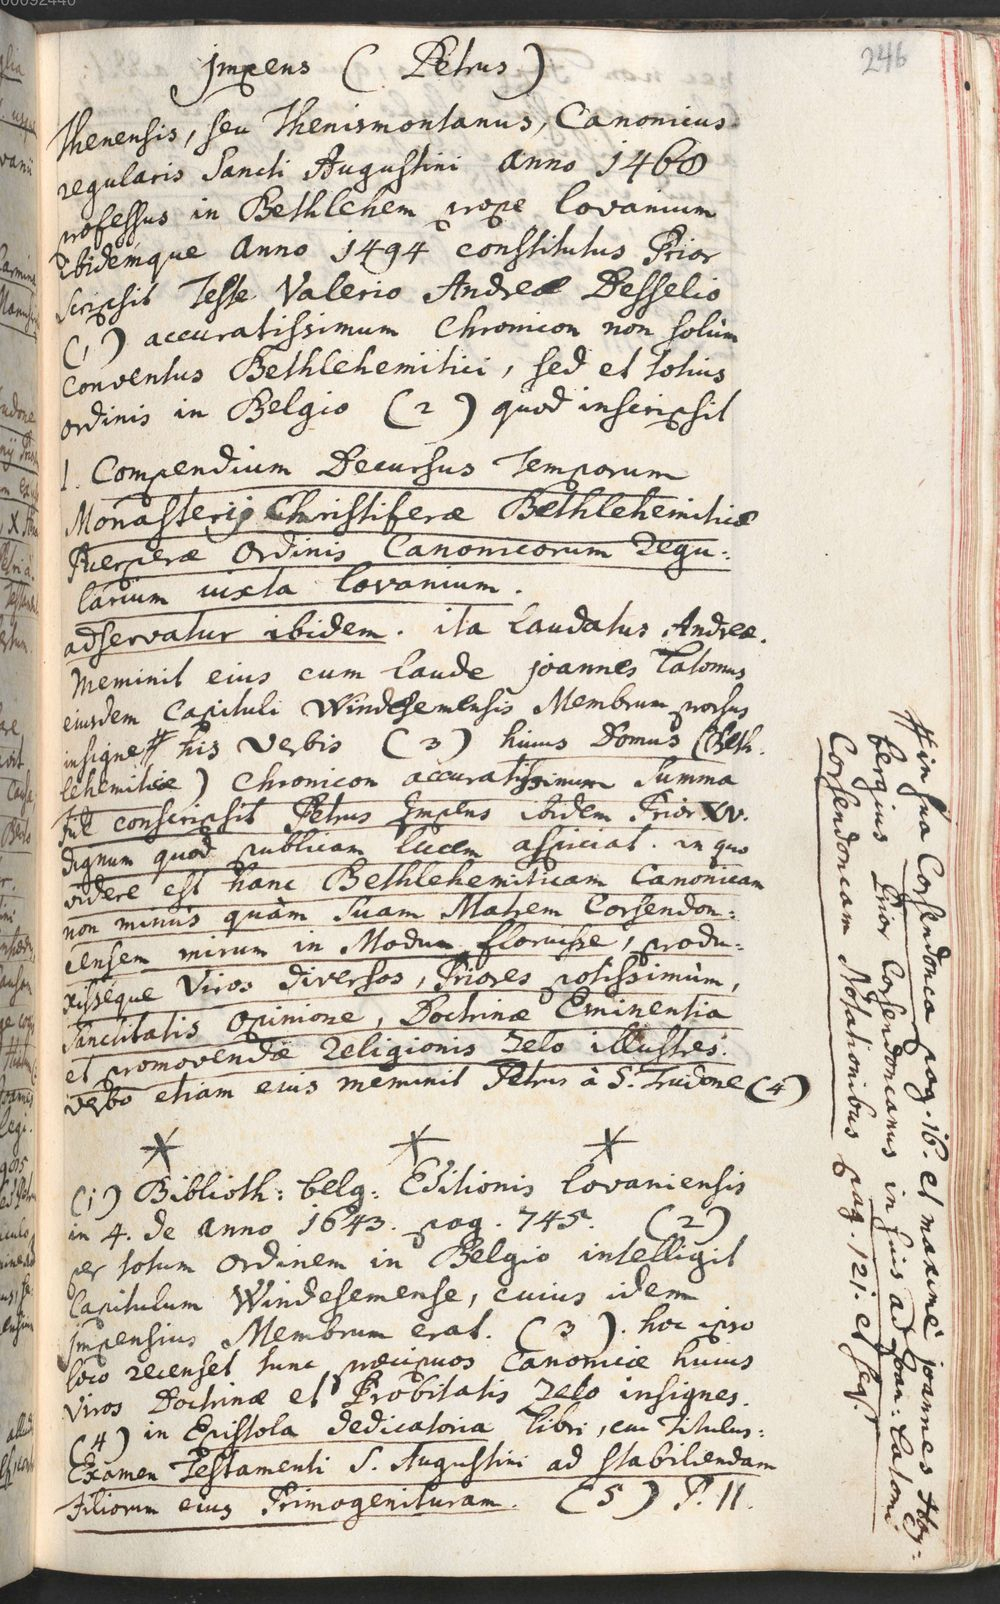 246
Impens ( Petrus )
Thenensis, seu Thenismontanus, Canonicus
regularis Sancti Augustini anno 1468
professus in Bethlehem prope lovanium
ibidemque anno 1494 constitutus Prior
scripsit Teste Valerio Andreæ Desselio
(1) accuratissimum Chronicon non solùm
Conventus Bethlehemitici, sed et totius
ordinis in Belgio (2) quod inscripsit
1. Compendium Decursus Temporum
Monasterij Christiferæ Bethlehemiticæ
Puerperæ Ordinis Canonicorum Regu:
larium iuxta lovanium.
adservatur ibidem. ita laudatus Andreæ.
Meminit eius cum laude joannes latomus
eiusdem Capituli Windesemensis Membrum prorsus
insigne # his verbis (3) huius Domus (Beth.
lehemiticæ) Chronicon accuratissimum summa
fide conscripsit Petrus Impens ibidem Prior XV.
dignum quod publicam lucem aspiciat. in quo
videre est hanc Bethlehemiticam Canonicam
non minùs quàm suam Matrem Corsendon:
censem mirum in Modum floruisse, produ:
xisséque Viros diversos, Priores potissimùm,
Sanctitatis opinione, Doctrinæ Eminentia
et promovendæ Religionis Zelo illustres.
verbo etiam eius meminit Petrus à S. Trudone (4)
(1) Biblioth: belg: Editionis lovaniensis
in 4. de anno 1643. pag. 745. (2)
per totum ordinem in Belgio intelligit
Capitulum Windesemense, cuius idem
Impensius Membrum erat. (3). hoc ipso
loco recenset tunc præcipuos Canonicæ huius
Viros Doctrinæ et Probitatis Zelo insignes.
(4) in Epistola dedicatoria libri, cui Titulus:
Examen Testamenti S. Augustini ad stabiliendam
filiorum eius Primogenituram. (5) P. 11.
# in sua Corsendonca pag. 16. et maximè joannes Hoy:
bergius Prior Corsendoncanus in suis ad Joan: latomi
Corsendoncam Notationibus pag. 121. et seq.